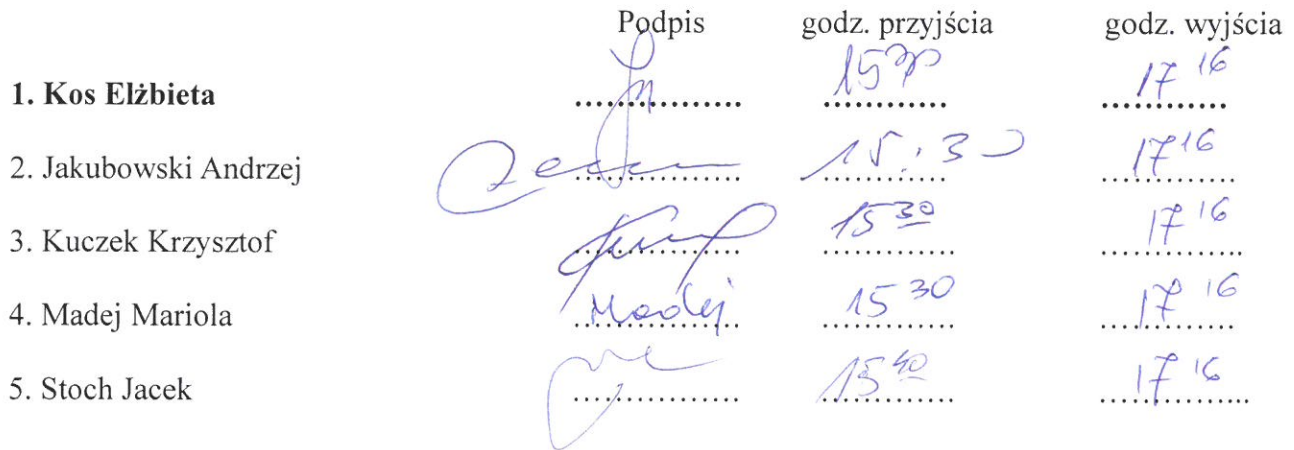 Podpis godz. przyjścia godz. wyjścia
1. Kos Elżbieta .................. 15 30 17 16
2. Jakubowski Andrzej .................. 15:30 17 16
3. Kuczek Krzysztof .................. 15 30 17 16
4. Madej Mariola Madej 15 30 17 16
5. Stoch Jacek .................. 15 40 17 16